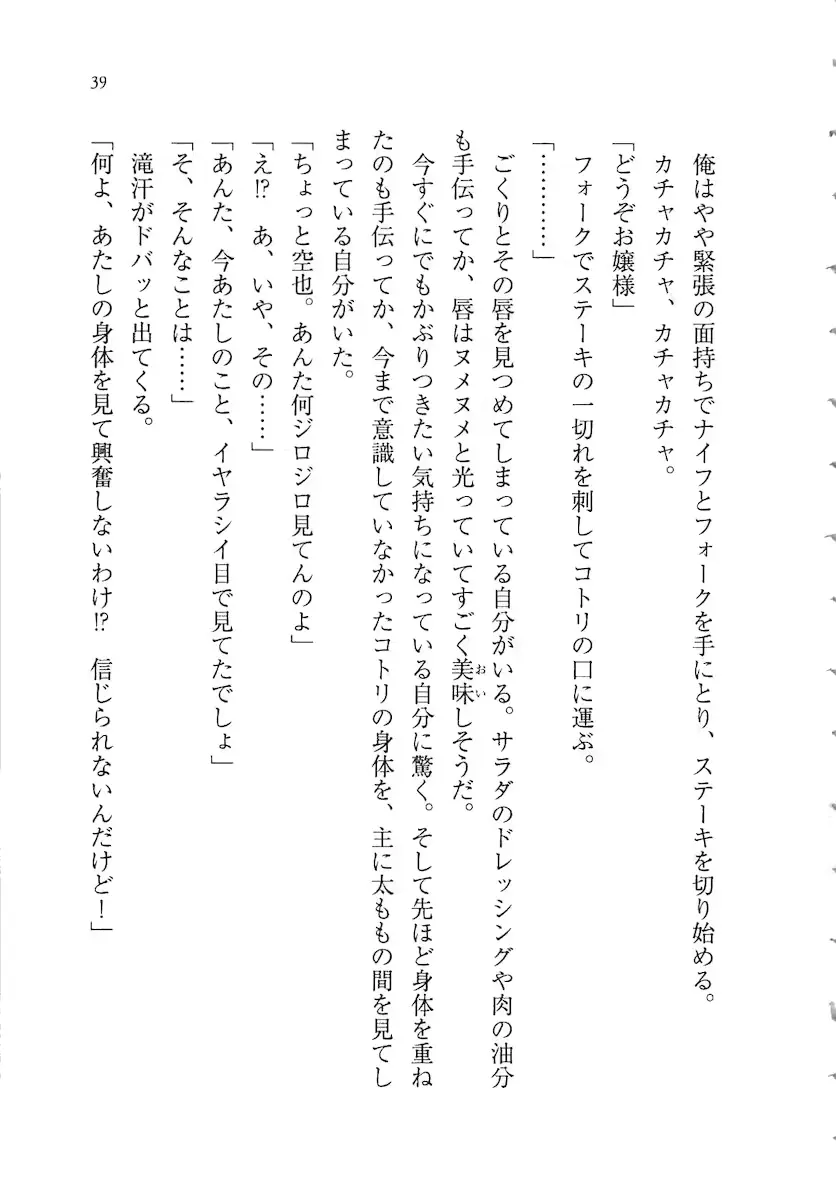 39
俺はやや緊張の面持ちでナイフとフォークを手にとり、ステーキを切り始める。
カチャカチャ、カチャカチャ。
「どうぞお嬢様」
フォークでステーキの一切れを刺してコトリの口に運ぶ。
「…………」
ごくりとその唇を見つめてしまっている自分がいる。サラダのドレッシングや肉の油分
も手伝ってか、唇はヌメヌメと光っていてすごく美味しそうだ。
今すぐにでもかぶりつきたい気持ちになっている自分に驚く。そして先ほど身体を重ね
たのも手伝ってか、今まで意識していなかったコトリの身体を、主に太ももの間を見てし
まっている自分がいた。
「ちょっと空也。あんた何ジロジロ見てんのよ」
「え!? あ、いや、その……」
「あんた、今あたしのこと、イヤラシイ目で見てたでしょ」
「そ、そんなことは……」
滝汗がドバッと出てくる。
「何よ、あたしの身体を見て興奮しないわけ!? 信じられないんだけど！」